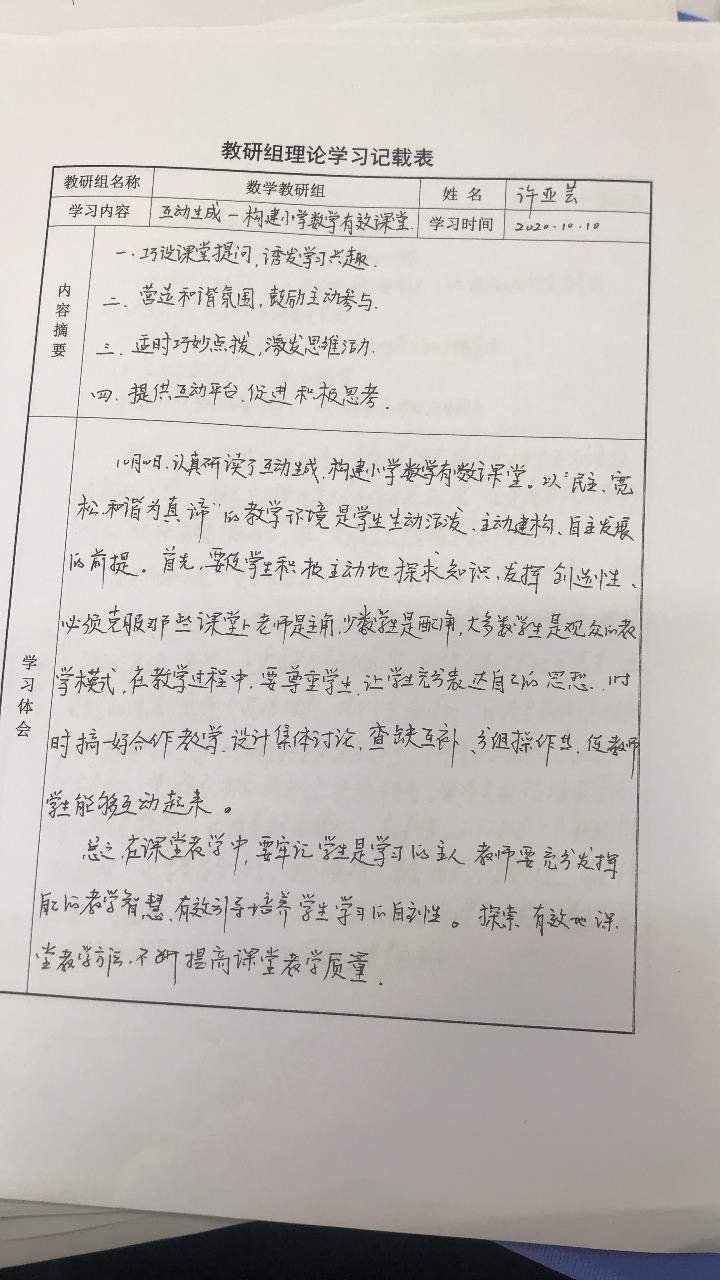 教研组理论学习记载表
教研组名称 数学教研组 姓名 许亚芸
学习内容 互动生成－构建小学数学有效课堂. 学习时间 2020.10.10
内容摘要
一.巧设课堂提问,诱发学习兴趣.
二.营造和谐氛围,鼓励主动参与.
三.适时巧妙点拨,激发思维活力.
四.提供互动平台.促进积极思考.
学习体会
10月10日.认真研读了互动生成,构建小学数学有效课堂。以“民主、宽
松、和谐为真谛”的教学环境是学生生动活泼、主动建构、自主发展
的前提。首先,要使学生积极主动地探求知识、发挥创造性、
必须克服那些课堂上老师是主角,少数学生是配角,大多数学生是观众的教
学模式,在教学过程中,要尊重学生,让学生充分表达自己的思想.
时搞好合作教学,设计集体讨论,查缺互补、分组操作等,使教师
学生能够互动起来。
总之,在课堂教学中,要牢记学生是学习的主人 教师要充分发挥
自己的教学智慧,有效引导培养学生学习的自主性。探索有效地课
堂教学方法.不断提高课堂教学质量.